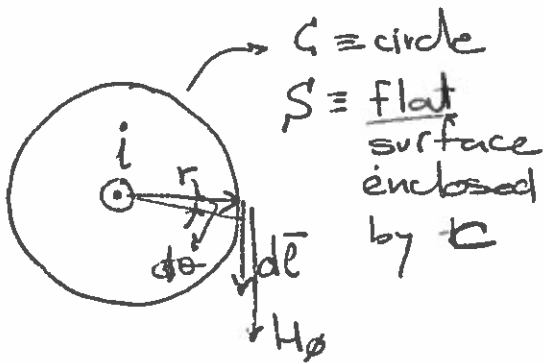 C ≡ circle
S ≡ flat
surface
enclosed
by C
i
r
dθ
dl̄
H_ø